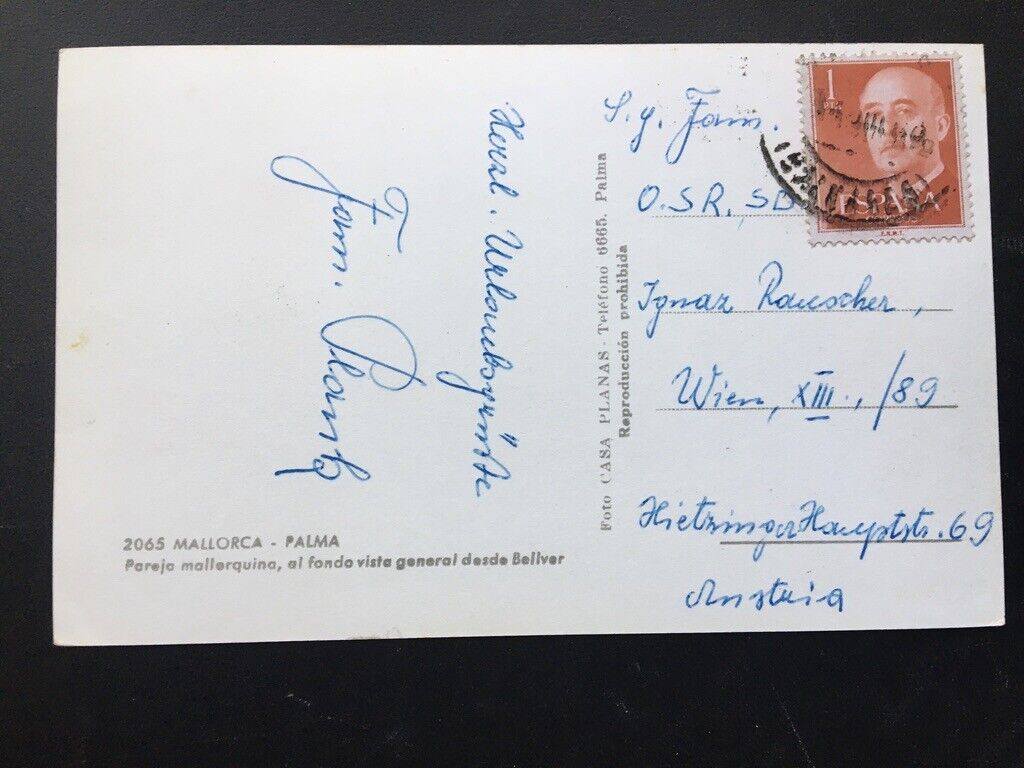 Herzl. Urlaubsgrüße
Fam. Plank
2065 MALLORCA - PALMA
Pareja mallorquina, al fondo vista general desde Bellver
Foto CASA PLANAS - Teléfono 6665. Palma
Reproducción prohibida
1
PTA
ESPAÑA
F.N.M.T.
S. g. Fam.
O.S.R.,
Ignaz Rauscher,
Wien, XIII., /89
Hietzinger Hauptstr. 69
Austria